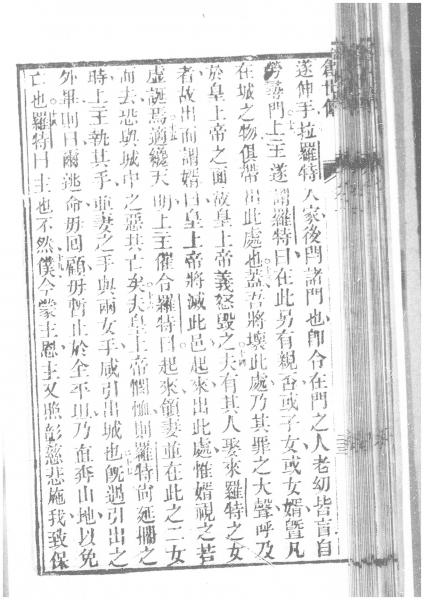 創世傳
遂伸手拉羅特人家後閂諸門也卽令在門之人老幼皆盲自
勞尋門上主遂謂羅特曰在此另有親否或子女或女婿曁凡
在城之物俱帶出此處也蓋吾將壞此處乃其罪之大聲呼及
於皇上帝之面故皇上帝義怒毀之夫有其人娶來羅特之女
者故出而謂婿曰皇上帝將滅此邑起來出此處惟婿視之若
虛誕焉適纔天明上主催令羅特曰起來領妻並在此之二女
而去恐與城中之惡其亡矣夫皇上帝憫恤則羅特尚延擱之
時上主執其手並妻之手與兩女手咸引出城也旣過引出之
外畢則曰爾逃命毋回顧毋暫止於全平坦乃直奔山地以免
亡也羅特曰主也不然僕今蒙主恩主又照彰慈悲施我致保